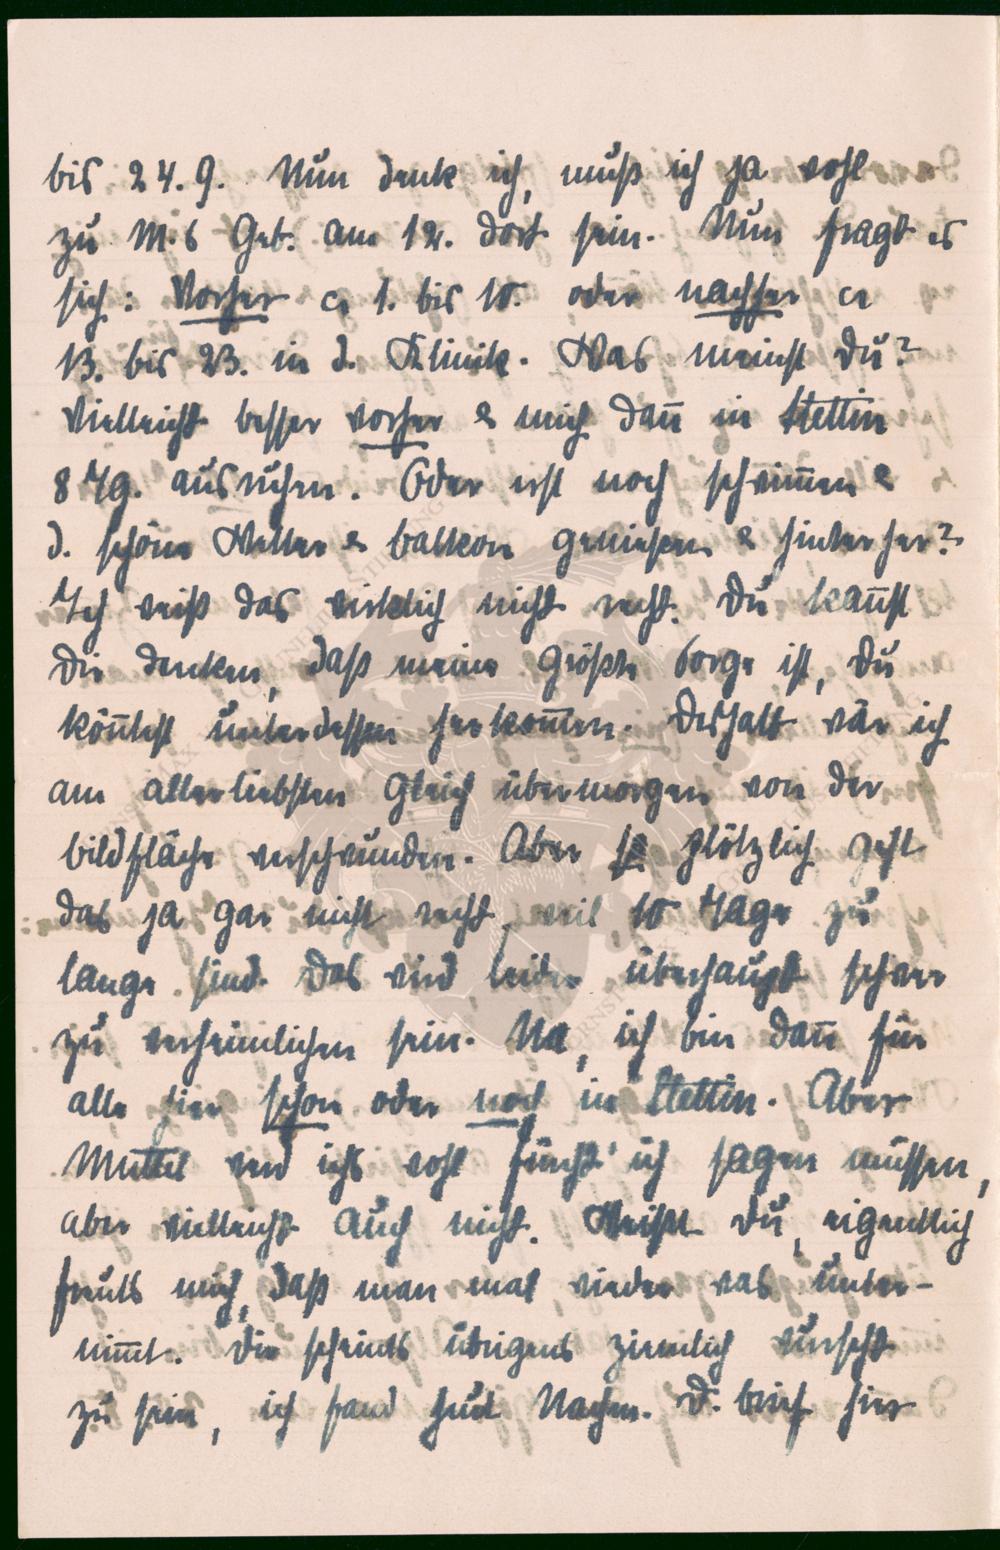 bis 24.9. Nun denk ich, muß ich ja wohl
zu M.s Geb. am 12. dort sein. Nun fragt es
sich: Vorher ca 1. bis 10. oder nachher ca
13. bis 23. in d. Klinik. Was meinst Du?
Vielleicht besser vorher & mich dan̄ in Stettin
8 Tg. ausruhen. Oder erst noch schwim̄en &
d. schöne Wetter & Balkon geniesen & hinterher?
Ich weiß das wirklich nicht recht. Du kan̄st
Dir denken, daß meine größte Sorge ist, Du
kön̄test unterdessen herkom̄en. Deshalb wär ich
am allerliebsten gleich übermorgen von der
Bildfläche verschwunden. Aber so plötzlich geht
das ja gar nicht recht, weil 10 Tage zu
lange sind. Das wird leider überhaupt schwer
zu verheimlichen sein. Na, ich bin dan̄ für
alle hier schon oder noch in Stettin. Aber
Muttel werd ichs wohl fürcht' ich sagen müssen,
aber vielleicht auch nicht. Weißt Du, eigentlich
freuts mich, daß man mal wieder was unter-
nim̄t. Dir scheints übrigens ziemlich wurscht
zu sein, ich fand heut Nachm. D. Brief hier